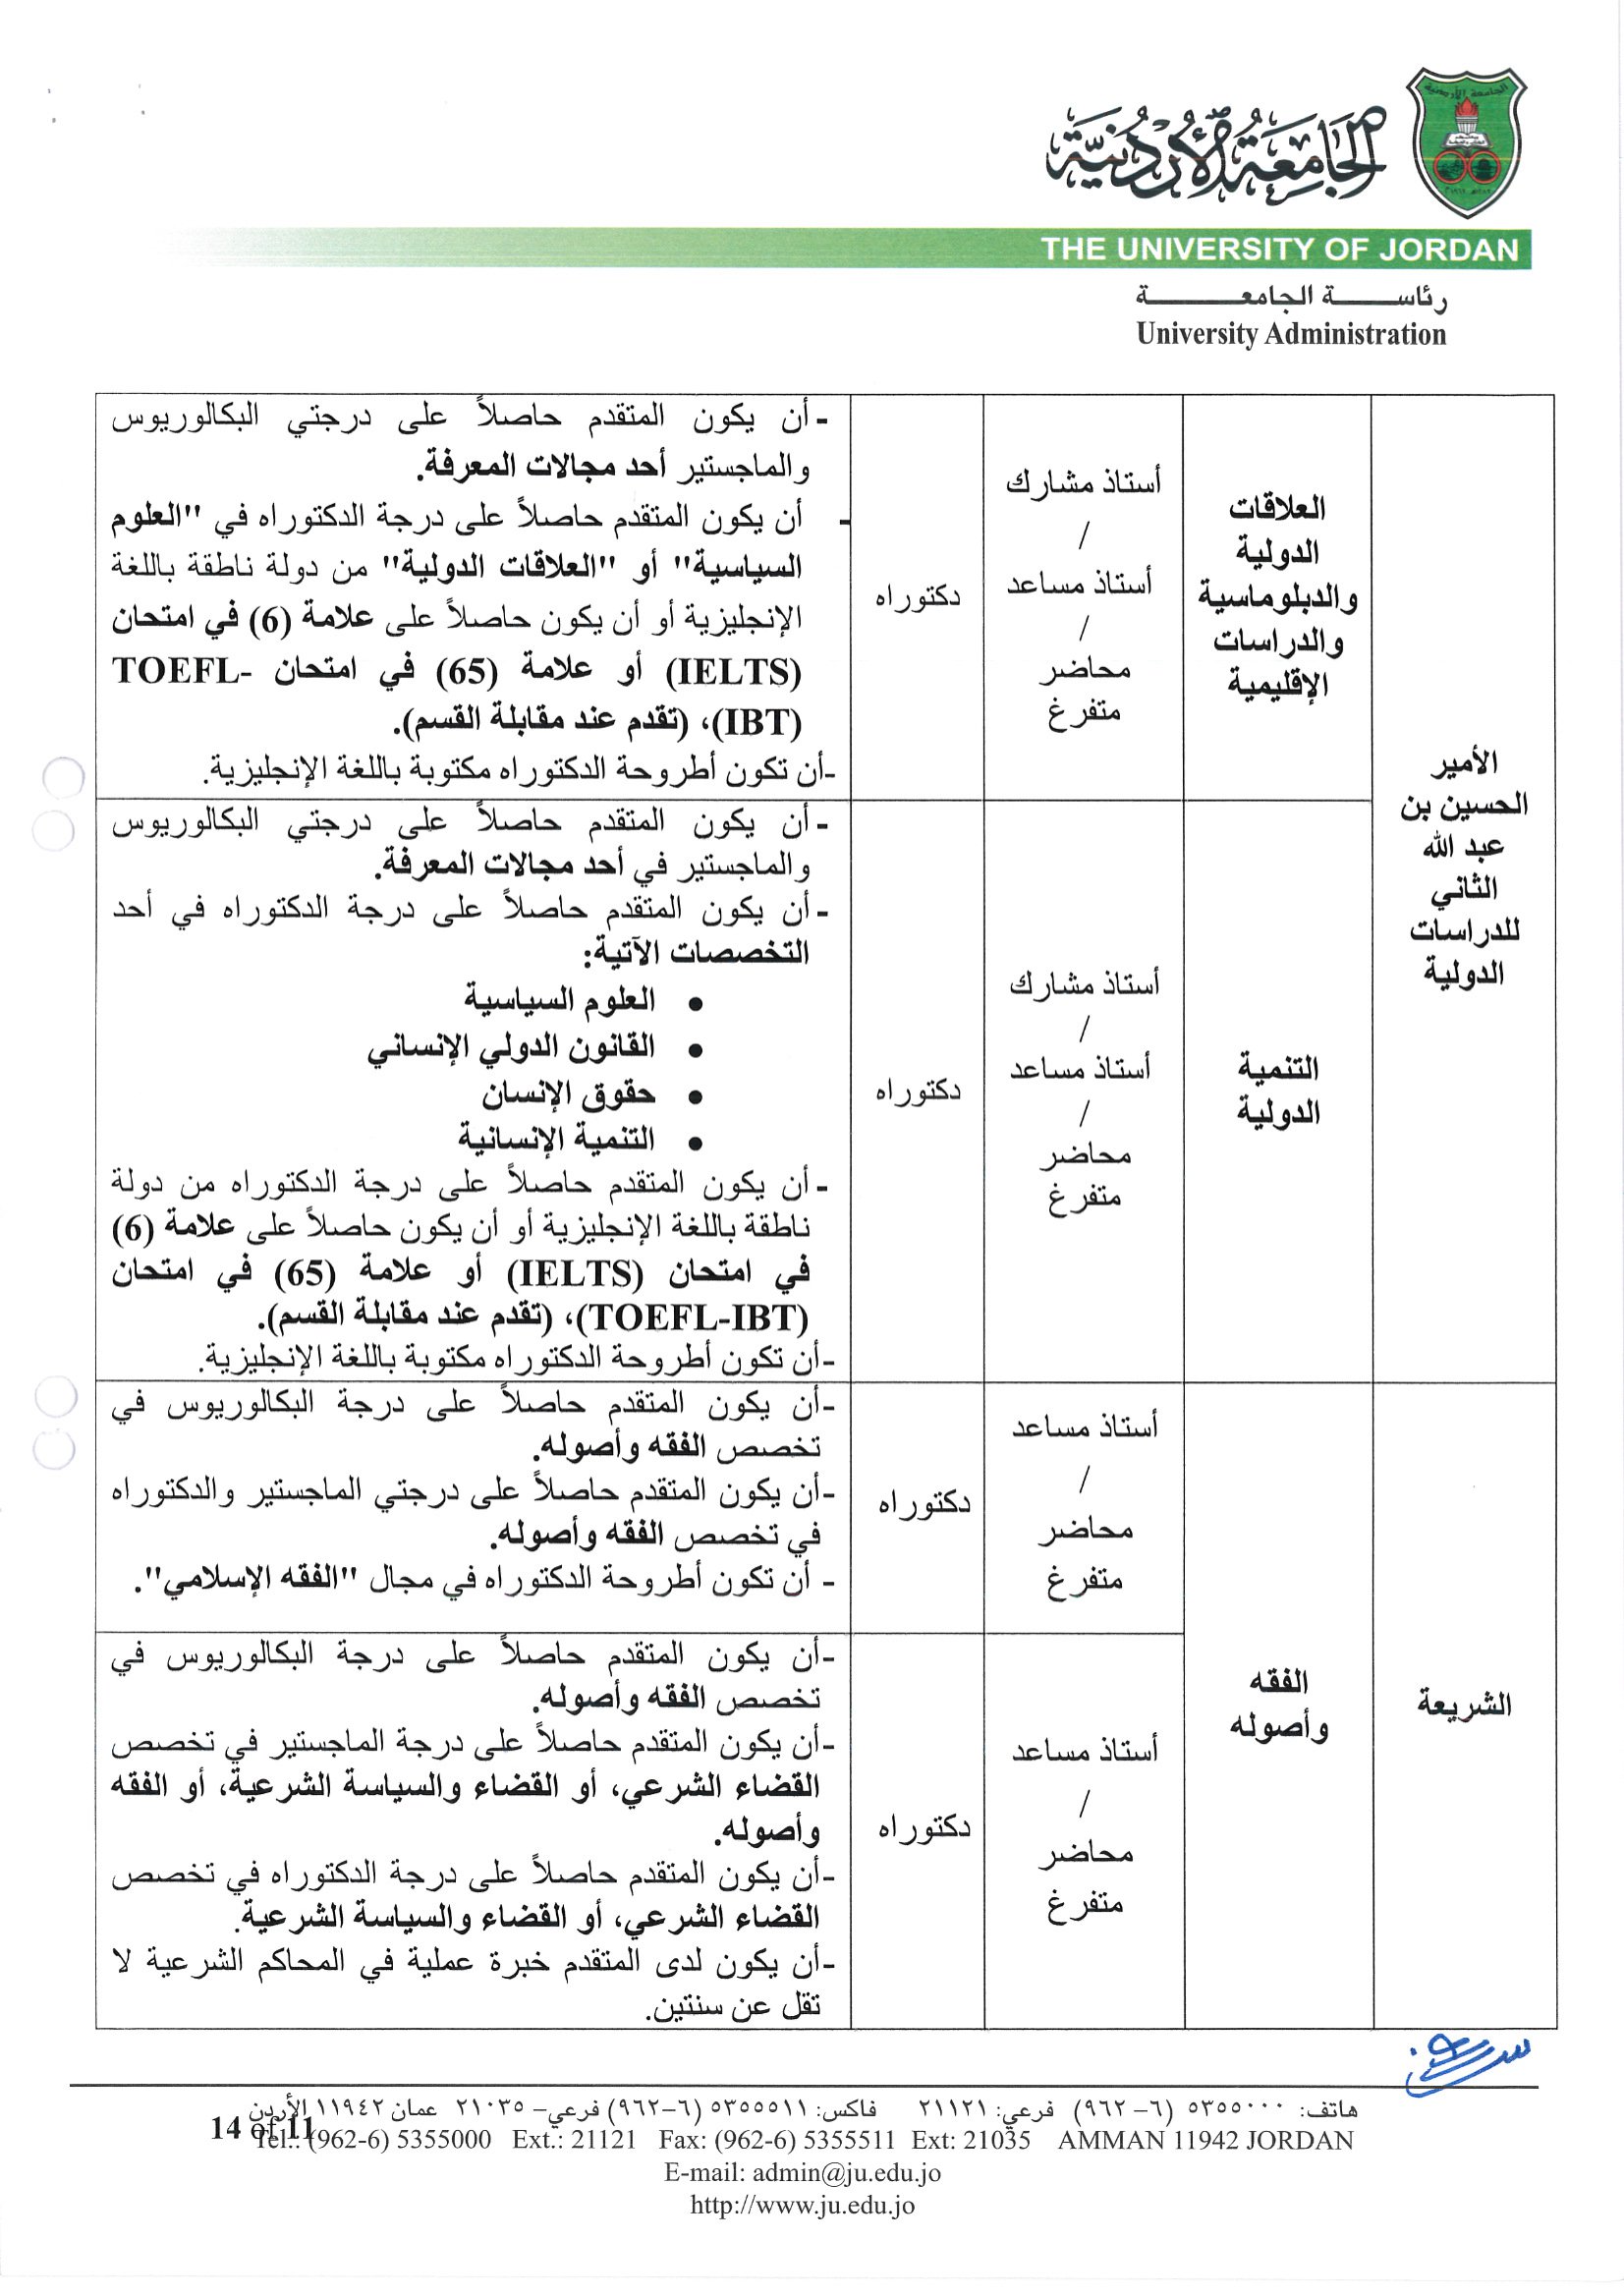 الجامعة الأردنية
THE UNIVERSITY OF JORDAN
رئاســـــة الجامعـــــــة
University Administration
الأمير
الحسين بن
عبد الله
الثاني
للدراسات
الدولية
العلاقات
الدولية
والدبلوماسية
والدراسات
الإقليمية
أستاذ مشارك
/
أستاذ مساعد
/
محاضر
متفرغ
دكتوراه
- أن يكون المتقدم حاصلاً على درجتي البكالوريوس
والماجستير أحد مجالات المعرفة.
- أن يكون المتقدم حاصلاً على درجة الدكتوراه في "العلوم
السياسية" أو "العلاقات الدولية" من دولة ناطقة باللغة
الإنجليزية أو أن يكون حاصلاً على علامة (6) في امتحان
(IELTS) أو علامة (65) في امتحان TOEFL-
(IBT)، (تقدم عند مقابلة القسم).
-أن تكون أطروحة الدكتوراه مكتوبة باللغة الإنجليزية.
التنمية
الدولية
أستاذ مشارك
/
أستاذ مساعد
/
محاضر
متفرغ
دكتوراه
- أن يكون المتقدم حاصلاً على درجتي البكالوريوس
والماجستير في أحد مجالات المعرفة.
- أن يكون المتقدم حاصلاً على درجة الدكتوراه في أحد
التخصصات الآتية:
• العلوم السياسية
• القانون الدولي الإنساني
• حقوق الإنسان
• التنمية الإنسانية
- أن يكون المتقدم حاصلاً على درجة الدكتوراه من دولة
ناطقة باللغة الإنجليزية أو أن يكون حاصلاً على علامة (6)
في امتحان (IELTS) أو علامة (65) في امتحان
(TOEFL-IBT)، (تقدم عند مقابلة القسم).
-أن تكون أطروحة الدكتوراه مكتوبة باللغة الإنجليزية.
الشريعة
الفقه
وأصوله
أستاذ مساعد
/
محاضر
متفرغ
دكتوراه
-أن يكون المتقدم حاصلاً على درجة البكالوريوس في
تخصص الفقه وأصوله.
-أن يكون المتقدم حاصلاً على درجتي الماجستير والدكتوراه
في تخصص الفقه وأصوله.
- أن تكون أطروحة الدكتوراه في مجال "الفقه الإسلامي".
أستاذ مساعد
/
محاضر
متفرغ
دكتوراه
-أن يكون المتقدم حاصلاً على درجة البكالوريوس في
تخصص الفقه وأصوله.
-أن يكون المتقدم حاصلاً على درجة الماجستير في تخصص
القضاء الشرعي، أو القضاء والسياسة الشرعية، أو الفقه
وأصوله.
-أن يكون المتقدم حاصلاً على درجة الدكتوراه في تخصص
القضاء الشرعي، أو القضاء والسياسة الشرعية.
-أن يكون لدى المتقدم خبرة عملية في المحاكم الشرعية لا
تقل عن سنتين.
هاتف: ٥٣٥٥٠٠٠ (٦-٩٦٢) فرعي: ٢١١٢١ فاكس: ٥٣٥٥٥١١ (٦-٩٦٢) فرعي- ٢١٠٣٥ عمان ١١٩٤٢ الأردن
14 of 11
Tel.: (962-6) 5355000 Ext.: 21121 Fax: (962-6) 5355511 Ext: 21035 AMMAN 11942 JORDAN
E-mail: admin@ju.edu.jo
http://www.ju.edu.jo